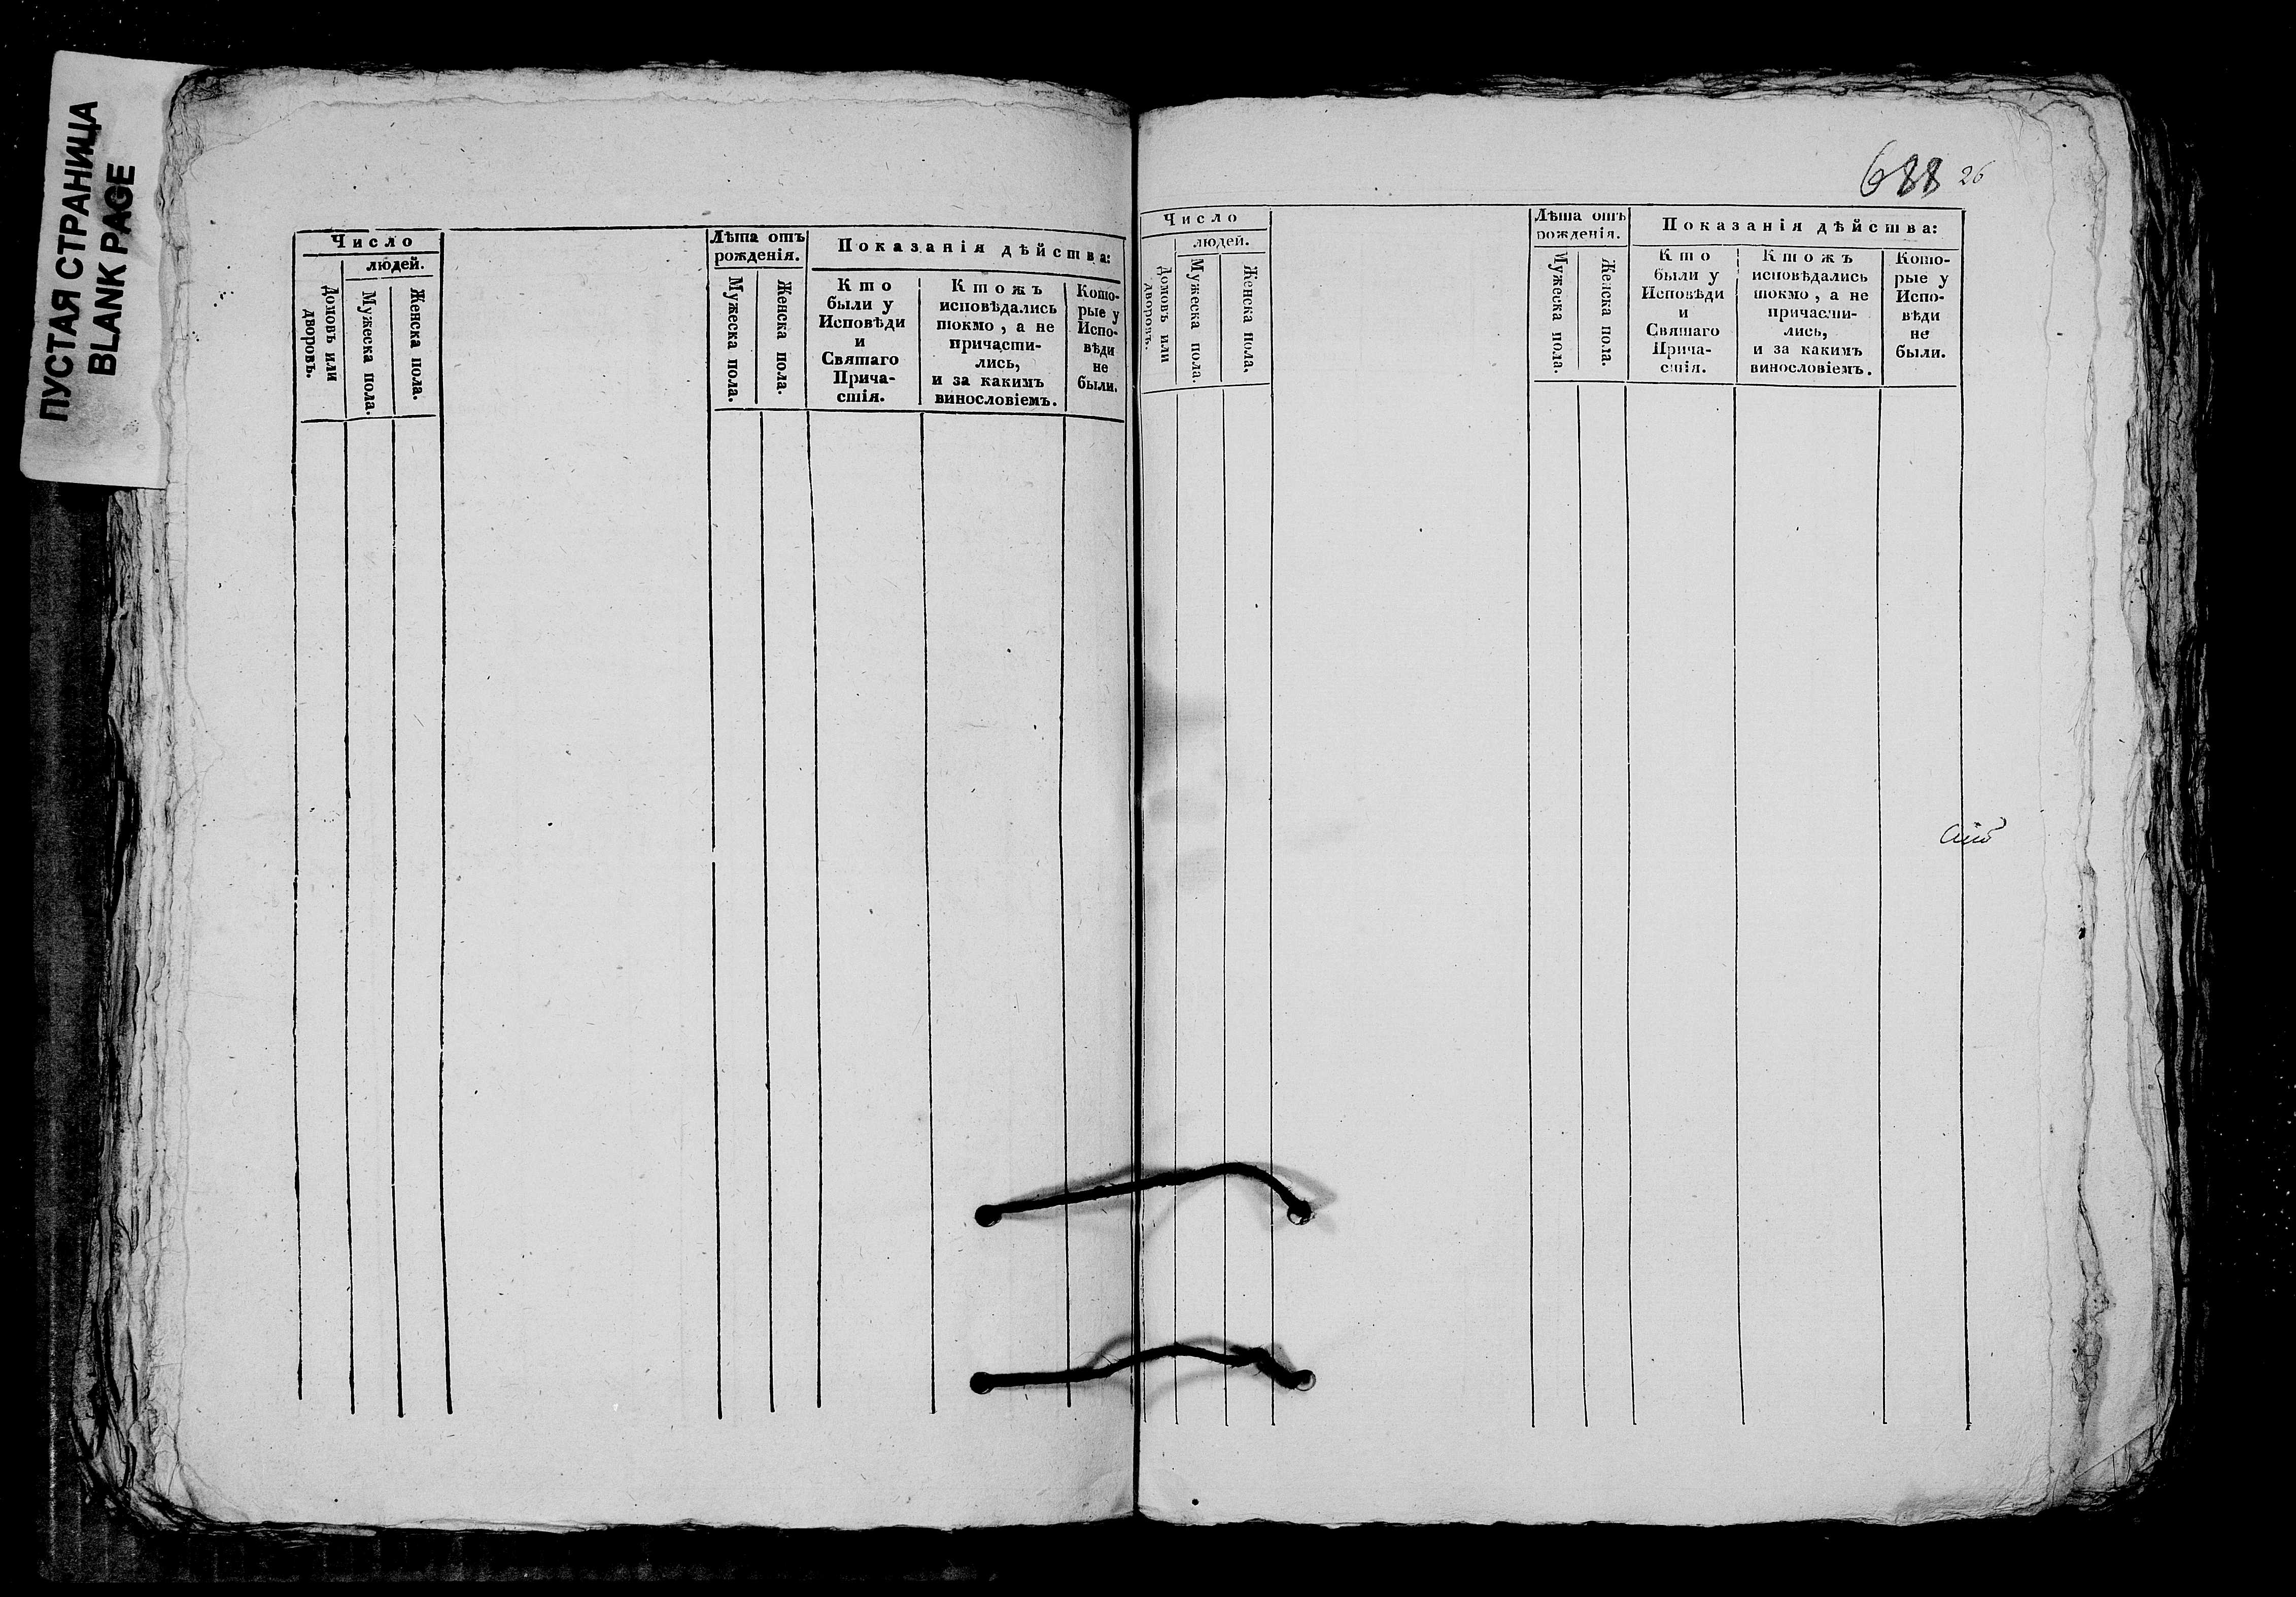 ПУСТАЯ СТРАНИЦА
BLANK PAGE
Число
людей.
Домовъ или
дворовъ.
Мужеска пола.
Женска пола.
Лѣта отъ
рожденія.
Мужеска пола.
Женска пола.
Показанія дѣйства:
Кто
были у
Исповѣди
и
Святаго
Прича-
стія.
Ктожъ
исповѣдались
токмо, а не
причасти-
лись,
и за какимъ
винословіемъ.
Кото-
рые у
Испо-
вѣди
не
были.
688 26
Число
людей.
Домовъ или
дворовъ.
Мужеска пола.
Женска пола.
Лѣта отъ
рожденія.
Мужеска пола.
Женска пола.
Показанія дѣйства:
Кто
были у
Исповѣди
и
Святаго
Прича-
стія.
Ктожъ
исповѣдались
токмо, а не
причасти-
лись,
и за какимъ
винословіемъ.
Кото-
рые у
Испо-
вѣди
не
были.